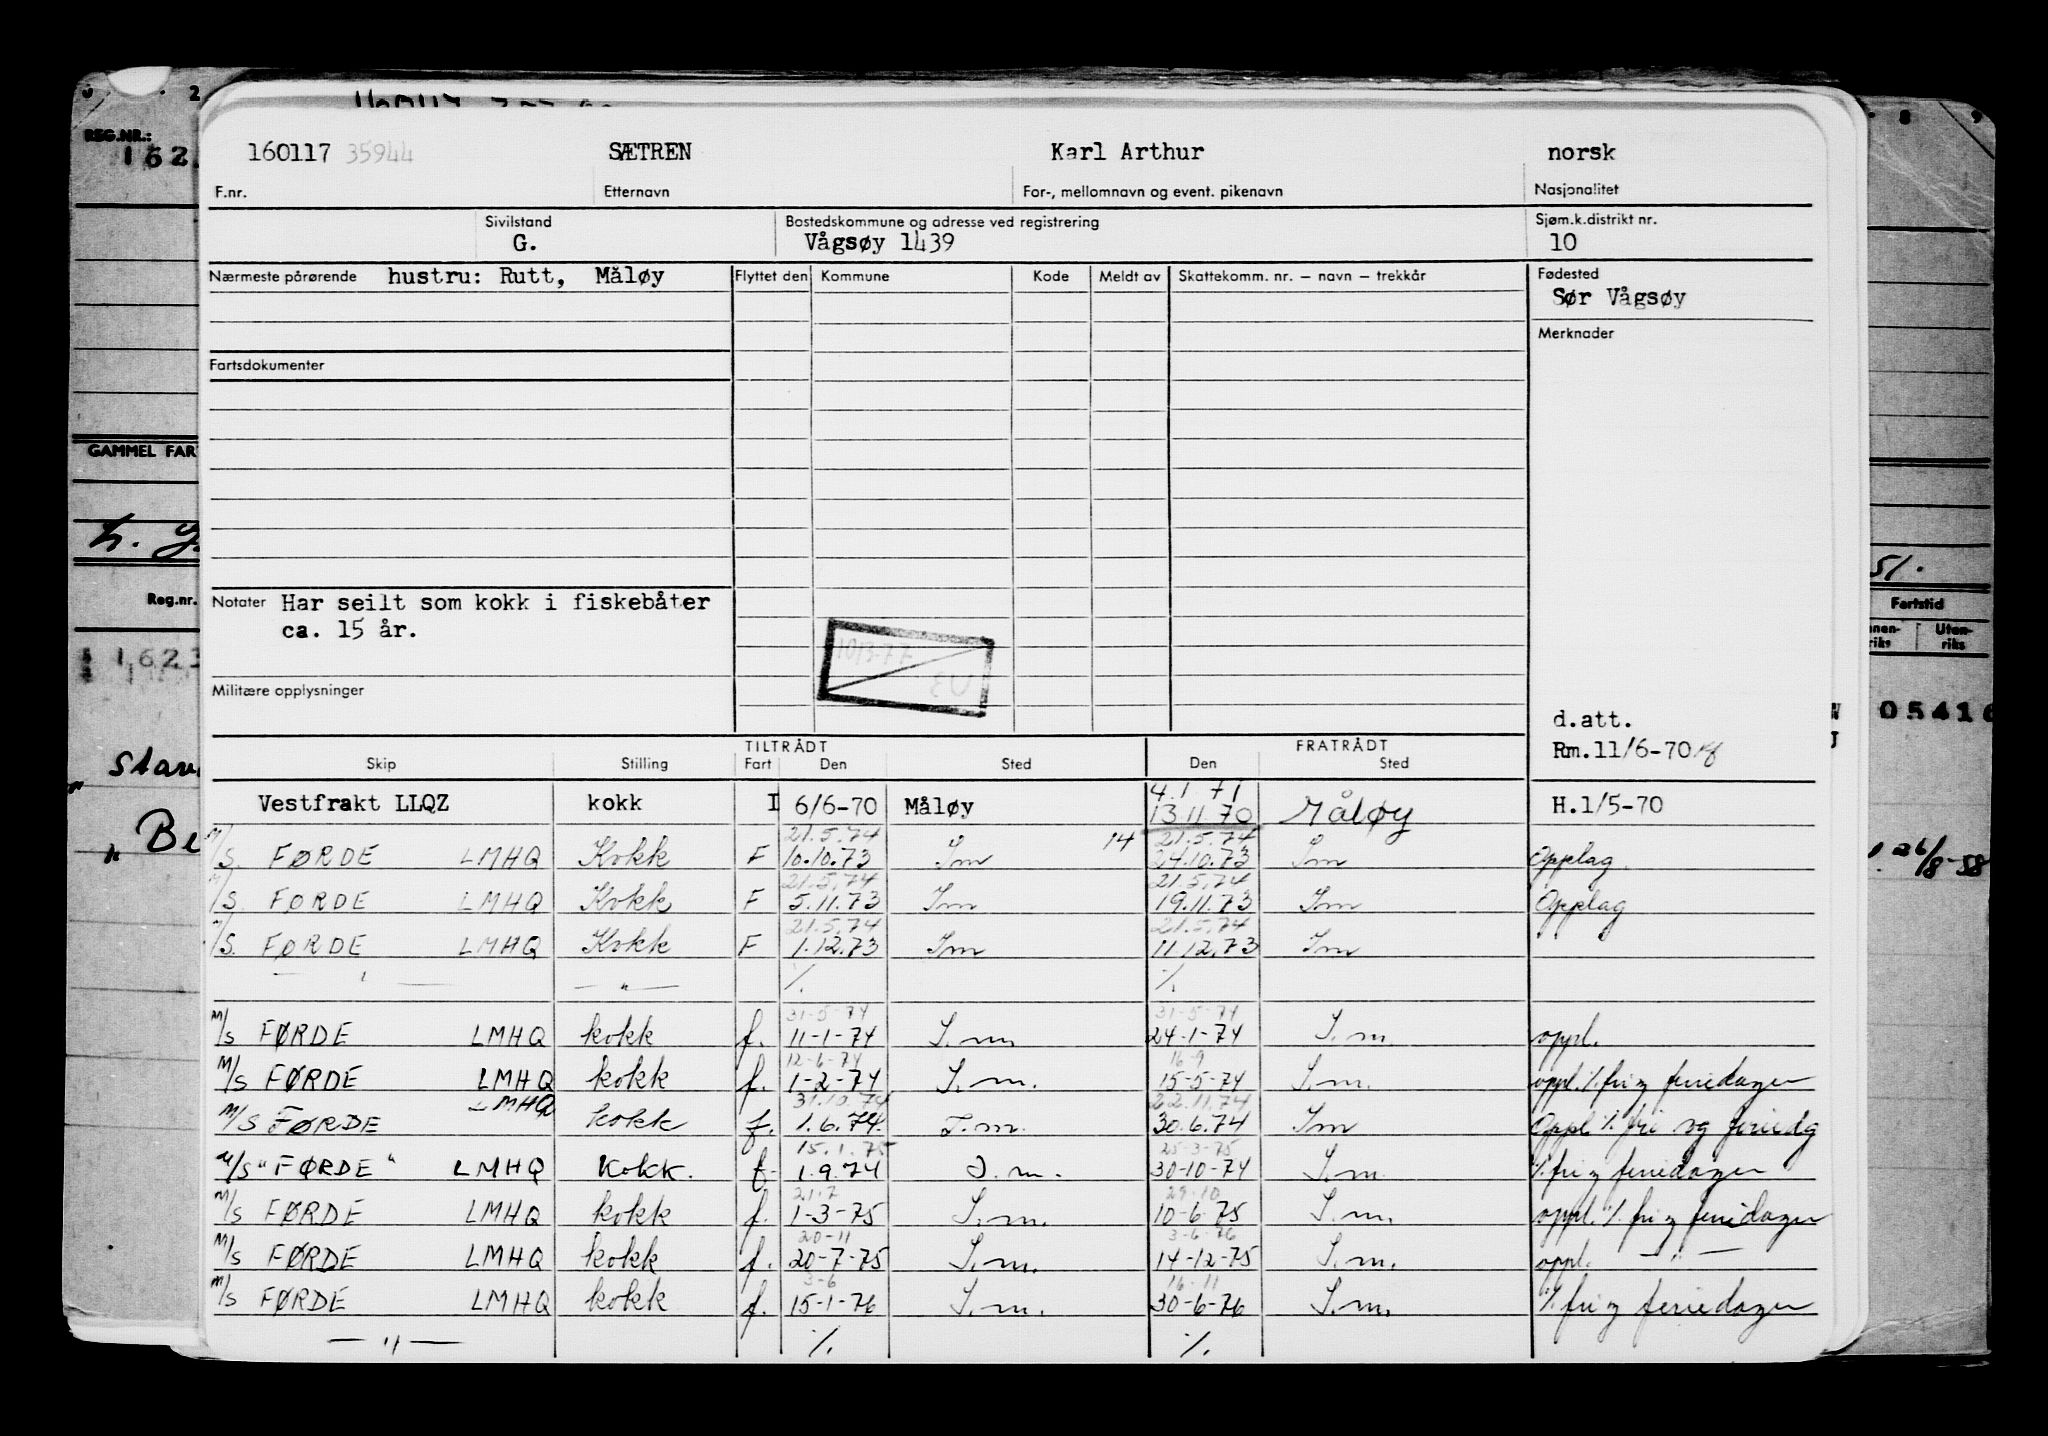 160117 35944 SÆTREN Karl Arthur norsk
F.nr. Etternavn For-, mellomnavn og event. pikenavn Nasjonalitet
Sivilstand Bostedskommune og adresse ved registrering Sjøm.k.distrikt nr.
G. Vågsøy 1439 10
Nærmeste pårørende hustru: Rutt, Måløy Flyttet den Kommune Kode Meldt av Skattekomm. nr. – navn – trekkår Fødested
Sør Vågsøy
Merknader
Fartsdokumenter
Notater Har seilt som kokk i fiskebåter
ca. 15 år.
10/3-77
Militære opplysninger
d.att.
Rm.11/6-70
TILTRÅDT FRATRÅDT
Skip Stilling Fart Den Sted Den Sted
4.1 71
Vestfrakt LLQZ kokk I 6/6-70 Måløy 13.11.70 Måløy H.1/5-70
21.5.74 14 21.5.74
M/S. FØRDE LMHQ Kokk F 10.10.73 Sm 24.10.73 Sm Opplag.
21.5.74 21.5.74
M/S. FØRDE LMHQ Kokk F 5.11.73 Sm 19.11.73 Sm Opplag
21.5.74 21.5.74
M/S. FØRDE LMHQ Kokk F 1.12.73 Sm 11.12.73 Sm
— " — — " — %. %.
31-5-74 31-5-74
M/S FØRDE LMHQ kokk f. 11-1-74 S.m. 24-1-74 S.m. oppl.
12-6-74 16-9
M/S FØRDE LMHQ kokk f. 1-2-74 S.m. 15-5-74 S.m. oppl. %. fri og feriedager
31.10.74 22.11.74
M/S FØRDE LMHQ kokk f. 1.6.74. S.m. 30.6.74 Sm Oppl %. fri og feriedg
15.1.75 25-3-75
M/S "FØRDE" LMHQ Kokk. f. 1.9.74 S.m. 30-10-74 S.m. %. fri og feriedager
21-7 29-10
M/S FØRDE LMHQ kokk f. 1-3-75 S.m. 10-6-75 S.m. oppl. %. fri og feriedager
20-11 3-6-76
M/S FØRDE LMHQ kokk f. 20-7-75 S.m. 14-12-75 S.m. oppl. — " —
3-6 16-11
M/S FØRDE LMHQ kokk f. 15-1-76 S.m. 30-6-76 S.m. %. fri og feriedager
— " — %. %.
REG.NR.:
162
GAMMEL FAR
Reg.nr.
1623
Stav
Be
8 9
51.
Fartstid
Uten-
riks
05416
26/8-58